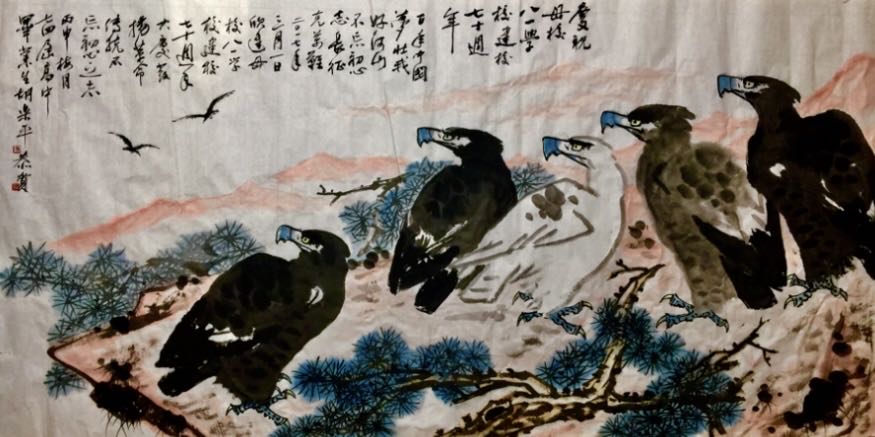 慶祝
母校
八一學
校建校
七十週
年
百年中國
夢壯我
好河山
不忘初心
志長征
克萬難
二〇一七年
三月一日
欣逢母
校八一學
校建校
七十週年
大慶發
揚革命
傳統不
忘初心之志
丙申梅月
高中
畢業生胡樂平 恭賀